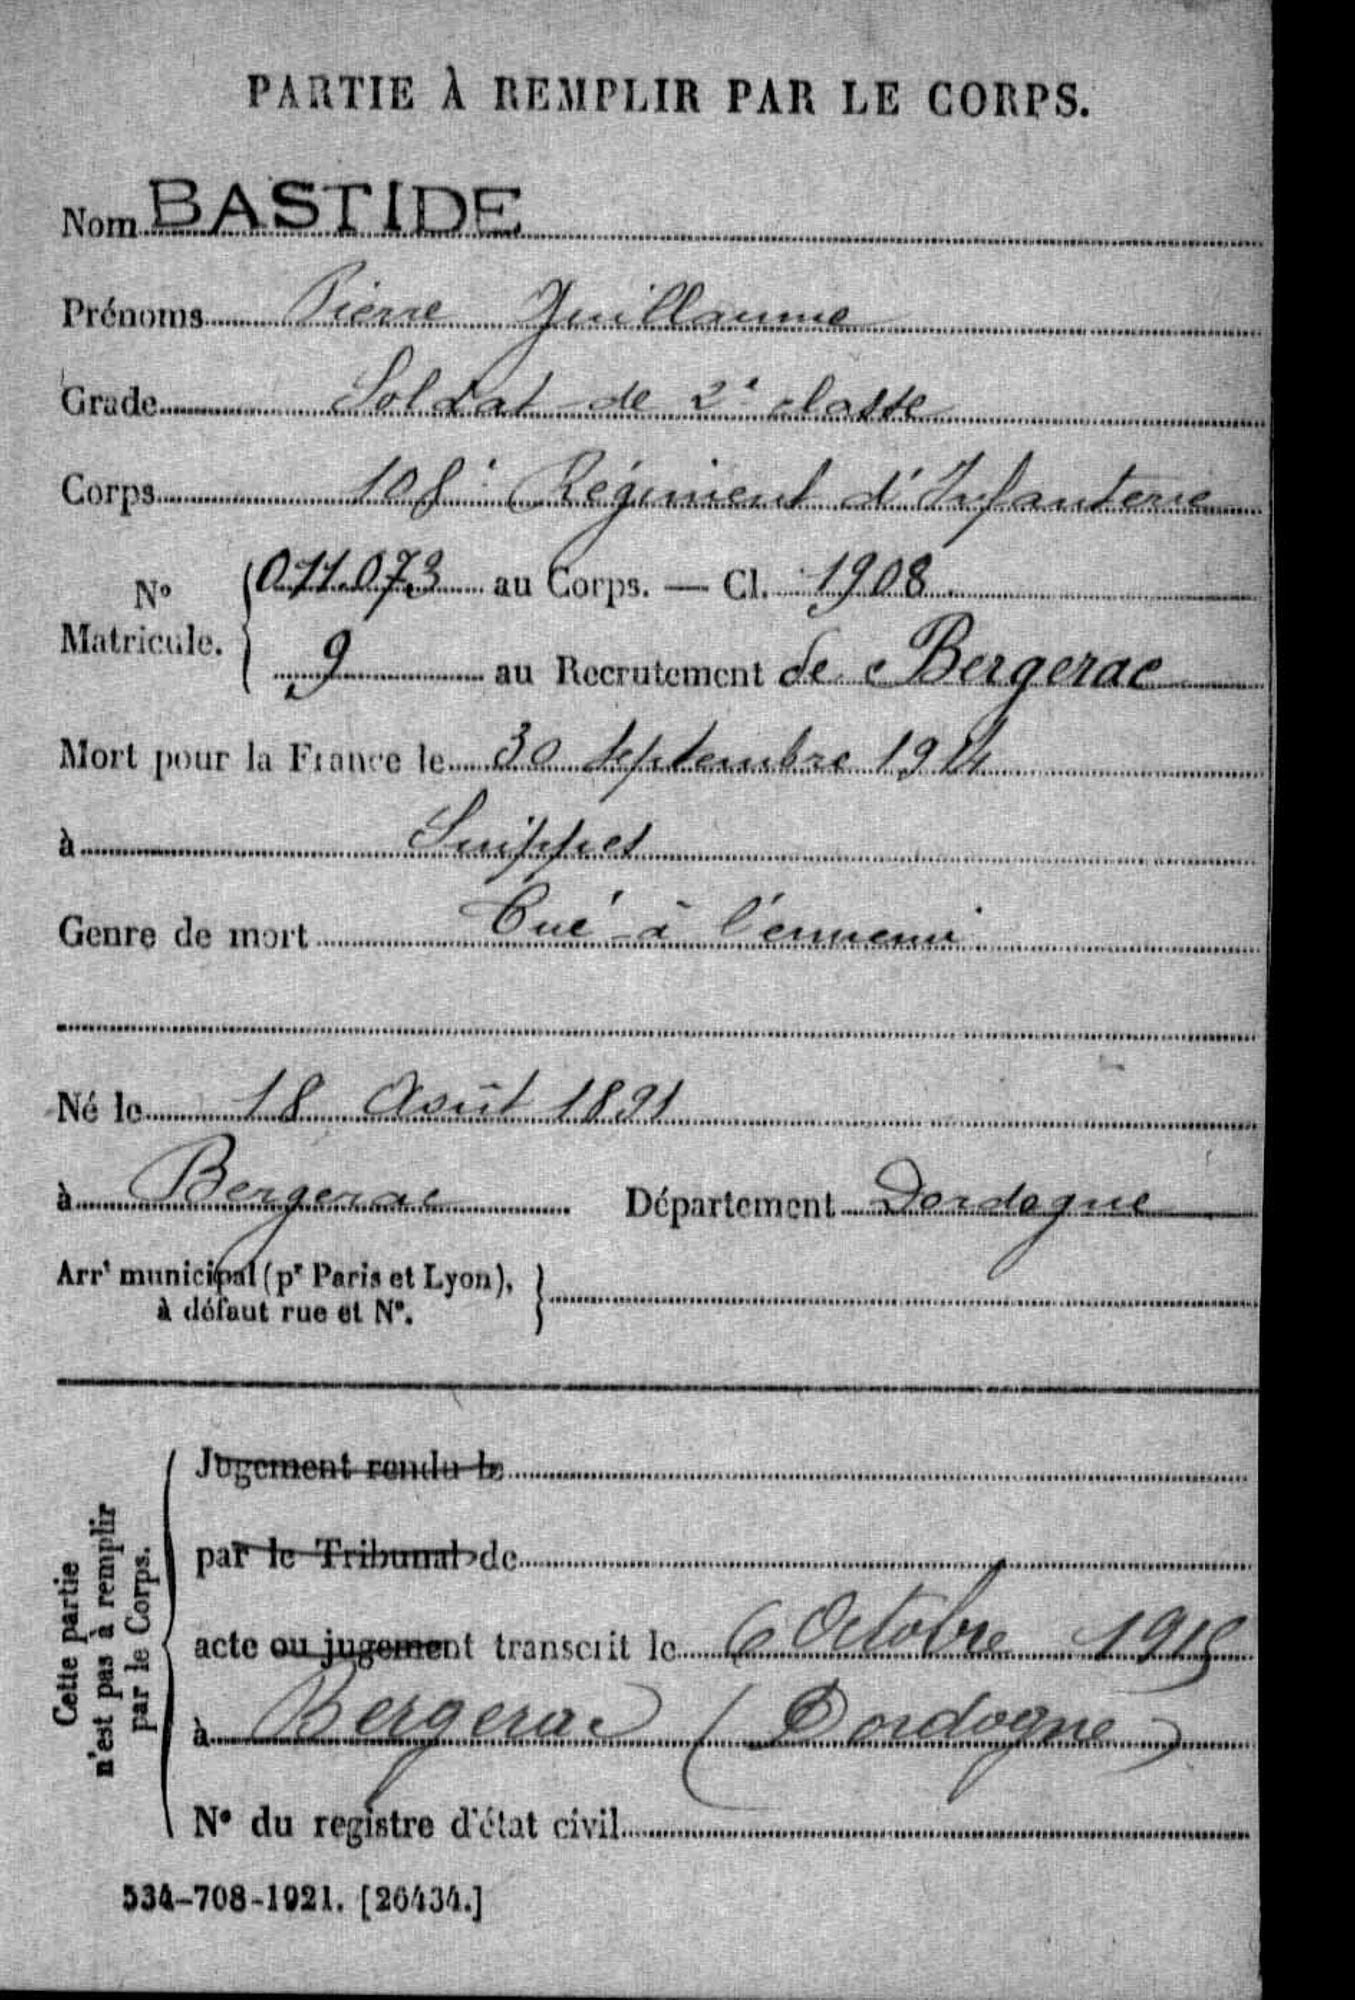 PARTIE À REMPLIR PAR LE CORPS.
Nom BASTIDE
Prénoms Pierre Guillaume
Grade Soldat de 2e classe
Corps 108e Régiment d'Infanterie
No Matricule. { 011.073 au Corps. — Cl. 1908
9 au Recrutement de Bergerac
Mort pour la France le 30 Septembre 1914
à Suippes
Genre de mort Tué à l'ennemi
Né le 18 Août 1891
à Bergerac Département Dordogne
Arrt municipal (pr Paris et Lyon), }
à défaut rue et No.
Cette partie
n'est pas à remplir
par le Corps.
Jugement rendu le
par le Tribunal de
acte ou jugement transcrit le 6 Octobre 1915
à Bergerac (Dordogne)
No du registre d'état civil
534-708-1921. [26434.]